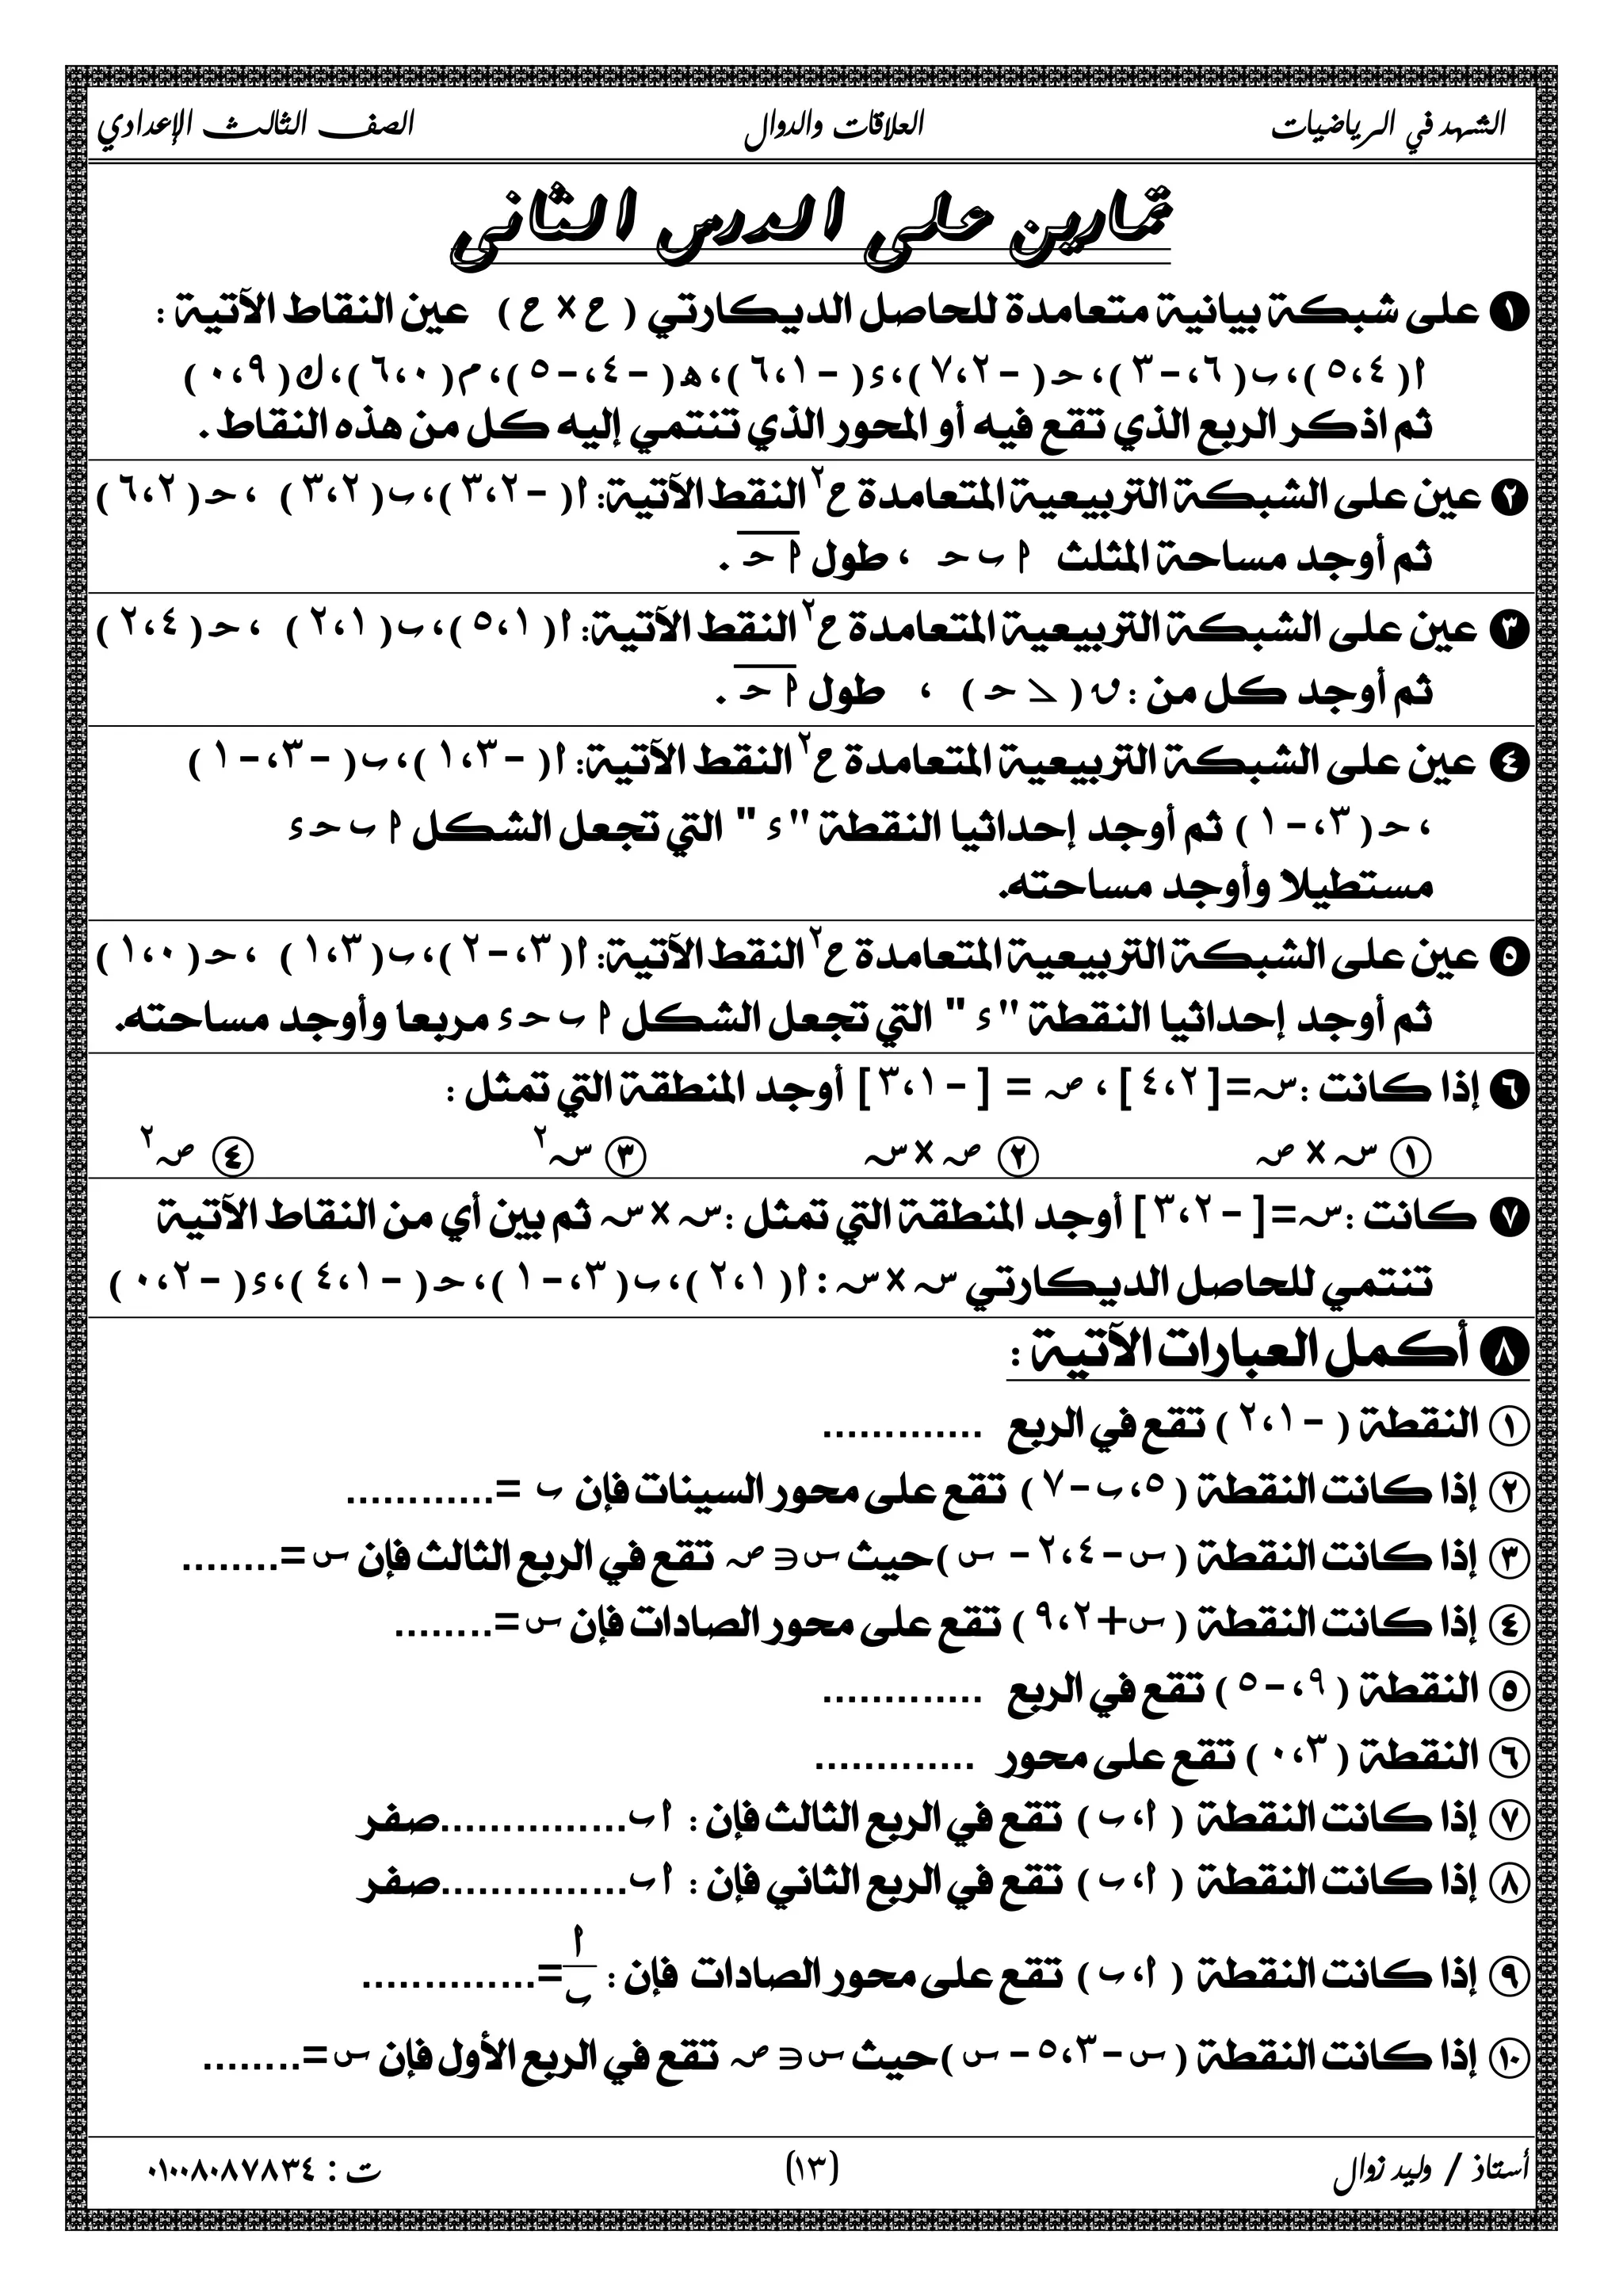 الشهد في الرياضيات العلاقات والدوال الصف الثالث الإعدادي
تمارين على الدرس الثانى
١ على شبكة بيانية متعامدة للحاصل الديكارتي ( ح × ح ) عين النقاط الآتية :
ا( ٤ ، ٥ ) ، ب( ٦ ، -٣ ) ، حـ( -٢ ، ٧ ) ، ء( -١ ، ٦ ) ، هـ( -٤ ، -٥ ) ، م( ٠ ، ٦ ) ، ك( ٩ ، ٠ )
ثم اذكر الربع الذي تقع فيه أو المحور الذي تنتمي إليه كل من هذه النقاط .
٢ عين على الشبكة التربيعية المتعامدة ح٢ النقط الآتية: ا( -٢ ، ٣ ) ، ب( ٢ ، ٣ ) ، حـ( ٢ ، ٦ )
ثم أوجد مساحة المثلث ا ب حـ ، طول ا حـ .
٣ عين على الشبكة التربيعية المتعامدة ح٢ النقط الآتية: ا( ١ ، ٥ ) ، ب( ١ ، ٢ ) ، حـ( ٤ ، ٢ )
ثم أوجد كل من : ق ( ∠ حـ ) ، طول ا حـ .
٤ عين على الشبكة التربيعية المتعامدة ح٢ النقط الآتية: ا( -٣ ، ١ ) ، ب( -٣ ، -١ )
، حـ( ٣ ، -١ ) ثم أوجد إحداثيا النقطة "ء " التي تجعل الشكل ا ب حـ ء
مستطيلا وأوجد مساحته.
٥ عين على الشبكة التربيعية المتعامدة ح٢ النقط الآتية: ا( ٣ ، -٢ ) ، ب( ٣ ، ١ ) ، حـ( ٠ ، ١ )
ثم أوجد إحداثيا النقطة "ء " التي تجعل الشكل ا ب حـ ء مربعا وأوجد مساحته.
٦ إذا كانت : سـ=[ ٢ ، ٤ ] ، صـ = [ -١ ، ٣ ] أوجد المنطقة التي تمثل :
١ سـ × صـ ٢ صـ × سـ ٣ سـ٢ ٤ صـ٢
٧ كانت : سـ=[ -٢ ، ٣ ] أوجد المنطقة التي تمثل : سـ × سـ ثم بين أي من النقاط الآتية
تنتمي للحاصل الديكارتي سـ × سـ : ا( ١ ، ٢ ) ، ب( ٣ ، -١ ) ، حـ( -١ ، ٤ ) ، ء( -٢ ، ٠ )
٨ أكمل العبارات الآتية :
١ النقطة ( -١ ، ٢ ) تقع في الربع .............
٢ إذا كانت النقطة ( ٥ ، ب-٧ ) تقع على محور السينات فإن ب =............
٣ إذا كانت النقطة ( س-٤ ، ٢ - س )حيث س∈ صـ تقع في الربع الثالث فإن س=........
٤ إذا كانت النقطة ( س+٢ ، ٩ ) تقع على محور الصادات فإن س=........
٥ النقطة ( ٩ ، -٥ ) تقع في الربع .............
٦ النقطة ( ٣ ، ٠ ) تقع على محور .............
٧ إذا كانت النقطة ( ا ، ب ) تقع في الربع الثالث فإن : ا ب...............صفر
٨ إذا كانت النقطة ( ا ، ب ) تقع في الربع الثاني فإن : ا ب...............صفر
٩ إذا كانت النقطة ( ا ، ب ) تقع على محور الصادات فإن : ا/ب=..............
١٠ إذا كانت النقطة ( س-٣ ، ٥ - س )حيث س∈ صـ تقع في الربع الأول فإن س=........
أستاذ / وليد زوال (١٣) ت : ٠١٠٠٨٠٨٧٨٣٤